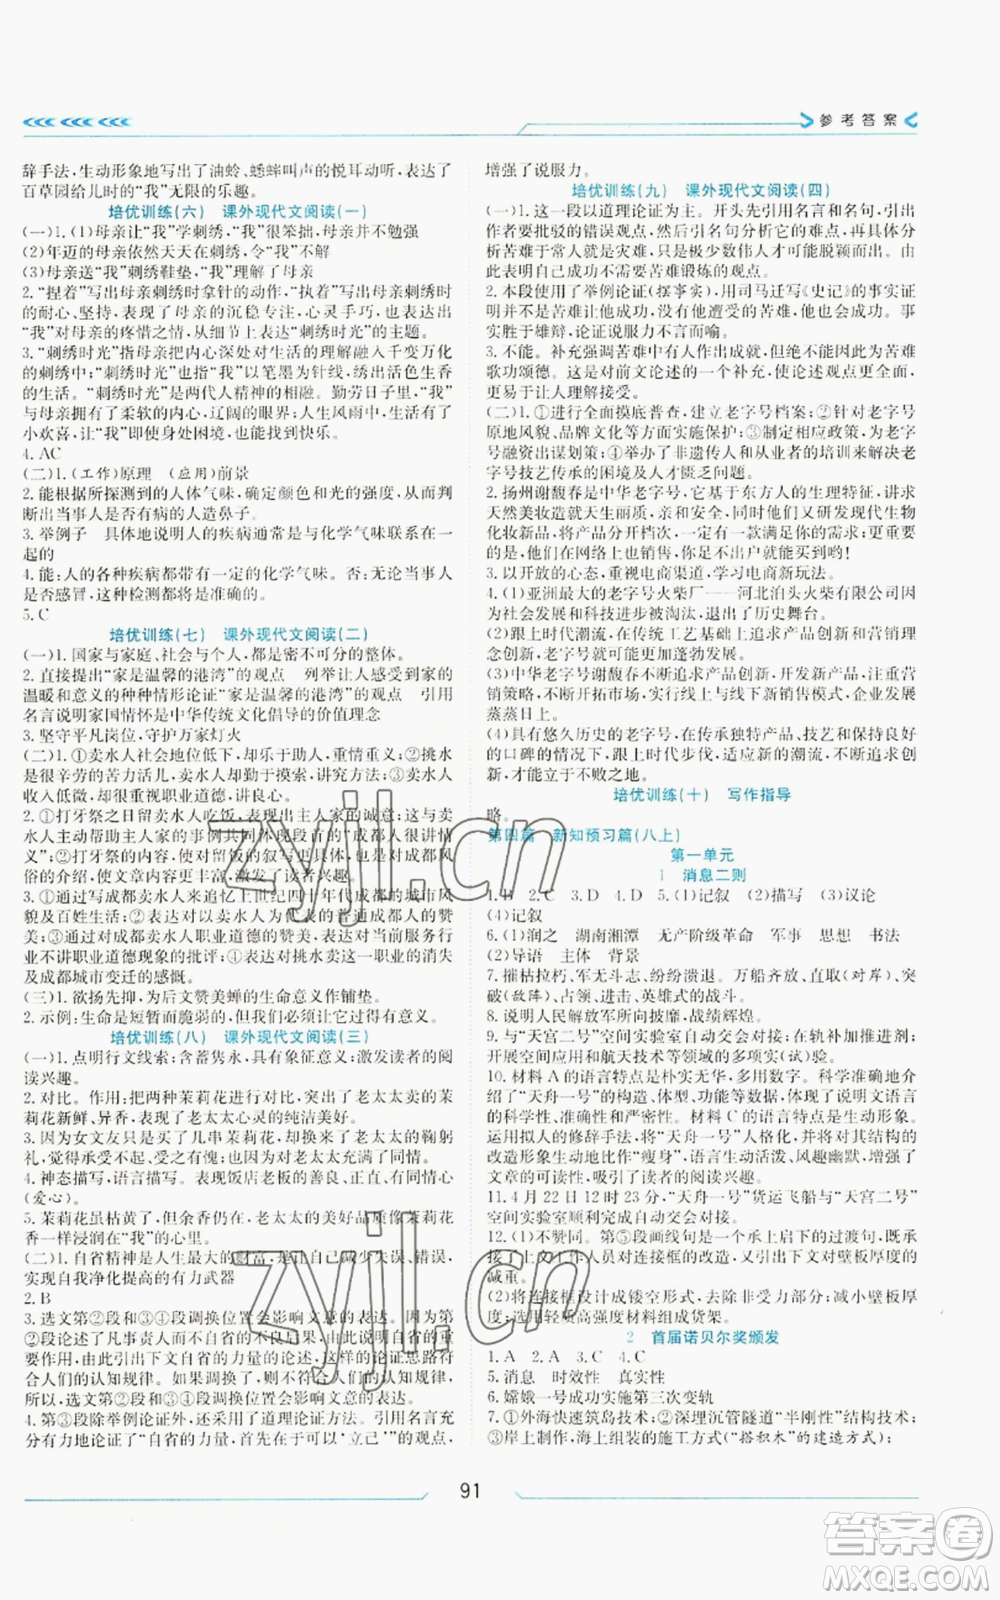 参考答案
辞手法,生动形象地写出了油蛉、蟋蟀叫声的悦耳动听,表达了
百草园给儿时的“我”无限的乐趣。
培优训练(六) 课外现代文阅读(一)
(一)1.(1)母亲让“我”学刺绣,“我”很笨拙,母亲并不勉强
(2)年迈的母亲依然天天在刺绣,令“我”不解
(3)母亲送“我”刺绣鞋垫,“我”理解了母亲
2.“捏着”写出母亲刺绣时拿针的动作,“执着”写出母亲刺绣时的
坚持,表现了母亲的沉稳专注、心灵手巧,也表达了
“我”对母亲的疼惜之情,从细节上突出“刺绣时光”的主题。
3.“刺绣时光”指母亲把内心深处对生活的理解融入千变万化
的刺绣中;“刺绣时光”指“我”以笔墨为针线,描绘活色生香
的生活。“刺绣时光”是两代人精神的相融。勤劳日子里,“我”
与母亲拥有了柔软的内心,辽阔的眼界;人生风雨中,生活有了
小欢喜,让“我”即使身处困境,也能找到快乐。
4. AC
(二)1.(工作)原理 (应用)前景
2.能根据所探测到的人体气味,确定颜色和光的强度,从而判断
出当事人是否有病的人造鼻子。
3.举例子 具体地说明人的疾病通常是与化学气味联系在一
起的
4.能:人的各种疾病都带有一定的化学气味。否:无论当事人
是否感冒,这种检测都将是有效的。
5. C
培优训练(七) 课外现代文阅读(二)
(一)1.国家与家庭、社会与个人,都是密不可分的整体。
2.直接提出“家是温馨的港湾”的观点 列举让人感受到家的
温暖和意义的种种情形论证“家是温馨的港湾”的观点 引用
名言说明家国情怀是中华传统文化倡导的价值理念
3.坚守平凡岗位,守护万家灯火
(二)1.①卖水人社会地位低下,却乐于助人,重情重义;②挑水
是很辛劳的苦力活儿,卖水人却勤于摸索,讲究方法;③卖水人
却很重视职业道德,讲良心。
2.①打牙祭之日留卖水人吃饭,表现出主人家的善良,突出了
卖水人主动帮助主人家的美好情义,使“过去的成都人很讲情义”
更有说服力;②打牙祭的场面体现了成都人浓郁的生活
风情,使文章对留饭的叙写更有情趣,引起读者兴趣。
3.①通过写成都卖水人来追忆上世纪四五十年代,成都的城市风
貌及百姓生活,表达对以卖水人为代表的成都人的赞
美;②通过对成都卖水人职业道德的赞美,表达对当今服务行
业不讲职业道德现象的批评;③表达对挑水卖水职业的消失及
成都城市变迁的感慨。
(三)1.欲扬先抑,为后文赞美蝉的生命意义作铺垫。
2.示例:生命是短暂而脆弱的,但我们可以让它过得有意义。
培优训练(八) 课外现代文阅读(三)
(一)1.点明行文线索;含蓄隽永,具有象征意义;激发读者的阅
读兴趣。
2.对比。作用:把两种茉莉花进行比较,突出了老太太卖的茉
莉花新鲜、异香,也衬托了老太太心灵的纯洁美好。
3.因为女文友只是买了几串茉莉花,却换来了老太太的鞠躬
礼,让我觉得这样有些过分,同时对老太太产生了同情。
4.神态描写,语言描写。表现饭店老板的善良,富有同情心
(爱心)。
5.茉莉花虽枯黄了,但余香仍在,老太太的美好品质像茉莉花香
一样浸润在“我”的心里。
(二)1.自省精神是人生最大的财富,是人们减少失误、错误,
实现自我净化提高的有力武器
2. B
3.选文第②段和第③段调换位置会影响文章的表达。因为第②
段运用了几事例表述了无自省之人的悲剧后果,从反面
引起自省的重要性,引出下文对自省的论证,这样的论证思路符合
人们的认知规律。如果调换,就不能符合人们的认知规律,
所以,选文第②段和第③段调换位置会影响文章的表达。
4.第③段除举例论证外还运用了道理论证方法。引用名言充
分有力地论证了“自省的力量,首先在于可以‘立己’”的观点,
增强了说服力。
培优训练(九) 课外现代文阅读(四)
(一)1.这一段以道理论证为主。开头先引用名言和名句,引出
作者要批驳的错误观点,然后引名句分析论述,得出
苦难于常人就是灾难,只是极少数伟人才可能凸显光芒,
由此表明自己成功不需要苦难锻炼的观点。
2.本段使用了举例论证(摆事实),用司马迁写《史记》的事例证
明并不是因为遭受苦难才成功,没有他遭受的苦难,他也会成功。
事实胜于雄辩,论证说服力不言而喻。
3.不能。补充强调苦难中有人作出成就,是因为自身坚强,不是苦难
歌功颂德。这是对前文论述的一个补充,使论证更
严密,易于让人理解接受。
(二)1.①进行全面摸底普查,建立老字号档案;②针对老字号
原地风貌、品牌文化等方面实施保护;③制定相应政策,为老字
号融资出谋划策;④举办非遗传人和从业者的培训来解决老
字号技艺传承的困境及人才匮乏问题。
2.扬州谢馥春是中华老字号,它基于东方人的生理特征,讲求
天然美妆造就天生丽质,亲和安全,又与时俱进研发现代生物
化妆新品,将产品分开档次,一定有一款满足
你的需求,他们在网络上也销售,你赶快下单购买到哟!
3.以开放的心态,重视电商渠道,学习电商新玩法。
4.(1)亚洲最大的老字号火柴厂——河北泊头火柴有限公司因
为社会发展和科技进步被淘汰,退出了历史舞台。
(2)顺应时代潮流,在传统工艺基础上追求产品创新和营销理念
创新,老字号也可能更加蓬勃发展。
(3)中华老字号谢馥春不断追求产品与技艺创新,注重运营
营销策略,不断开拓市场,适应新的网上销售模式,企业发展
蒸蒸日上。
(4)具有悠久历史的老字号,在传承独特产品、技艺和保持良好
的口碑的同时,要跟上时代步伐,适应新的潮流,不断开拓创
新,才能立于不败之地。
培优训练(十) 写作指导
略。
第四篇 新知预习篇(八上)
第一单元
1 消息二则
1. B 2. C 3. D 4. D 5.(1)记叙 (2)描写 (3)议论
(4)记叙
6.(1)润之 湖南湘潭 无产阶级革命 军事 思想 书法
(2)导语 主体 背景
7.摧枯拉朽、军无斗志、纷纷溃退。万船齐放、直取(对岸)、突
破(敌阵)、英勇善战。
8.说明人民解放军所向披靡,战绩辉煌。
9.与“天宫二号”空间实验室自动交会对接;在轨补加推进剂;
开展空间应用和航天技术等领域的多项实(试)验。
10.材料A的语言特点是朴实无华,多处使用数据科学准确地介
绍了“天舟一号”的构造、体型、功能等,体现了说明文语言
的科学性、准确性和严密性。材料C的语言特点是生动形象。
运用拟人的修辞手法,将“天舟一号”人格化,并将对其结构的
改造形象生动地比作“瘦身”,语言生动活泼、风趣幽默,增强了
文章的可读性,吸引了读者的阅读兴趣。
11.4月22日12时23分,“天舟一号”货运飞船与“天宫二号”
空间实验室顺利完成自动交会对接。
12.(1)不赞同。第⑤段画线句是一个承上启下的过渡句,承接
上文科研人员对连接框的改造,又引出下文对壁板厚度的
减重。
(2)将连接框设计成镂空形式,去除非受力部分;减小壁板厚
度,选用轻质高强度材料组成货架。
2 首届诺贝尔奖颁发
1. A 2. A 3. C 4. C
5.消息 时效性 真实性
6.嫦娥一号成功实施第三次变轨
7.①外海快速筑岛技术;②深埋沉管隧道“半刚性”结构技术;
③岸上制作,海上组装的施工方式(“搭积木”的建造方式);
91
zyjl.cn
zyjl.cn
答案圈
MXQE.COM